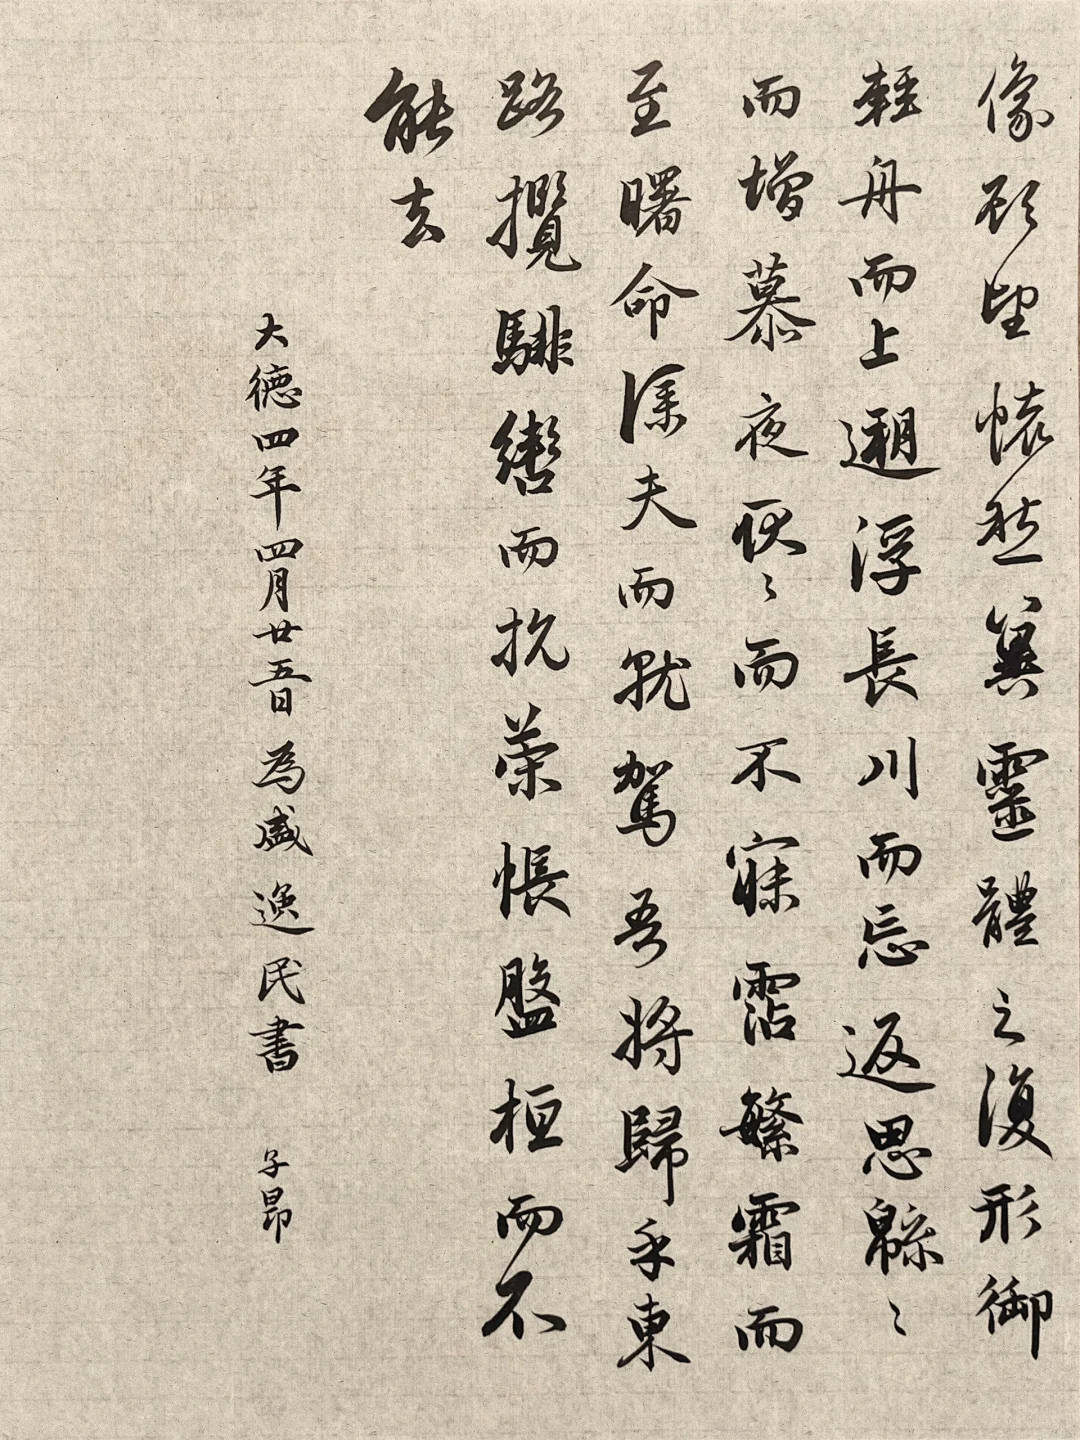 像顧望懷愁冀靈體之復形御
輕舟而上遡浮長川而忘返思緜〻
而增慕夜耿〻而不寐霑繁霜而
至曙命僕夫而就駕吾將歸乎東
路攬騑轡而抗策悵盤桓而不
能去
大德四年四月廿五日為盛逸民書 子昂